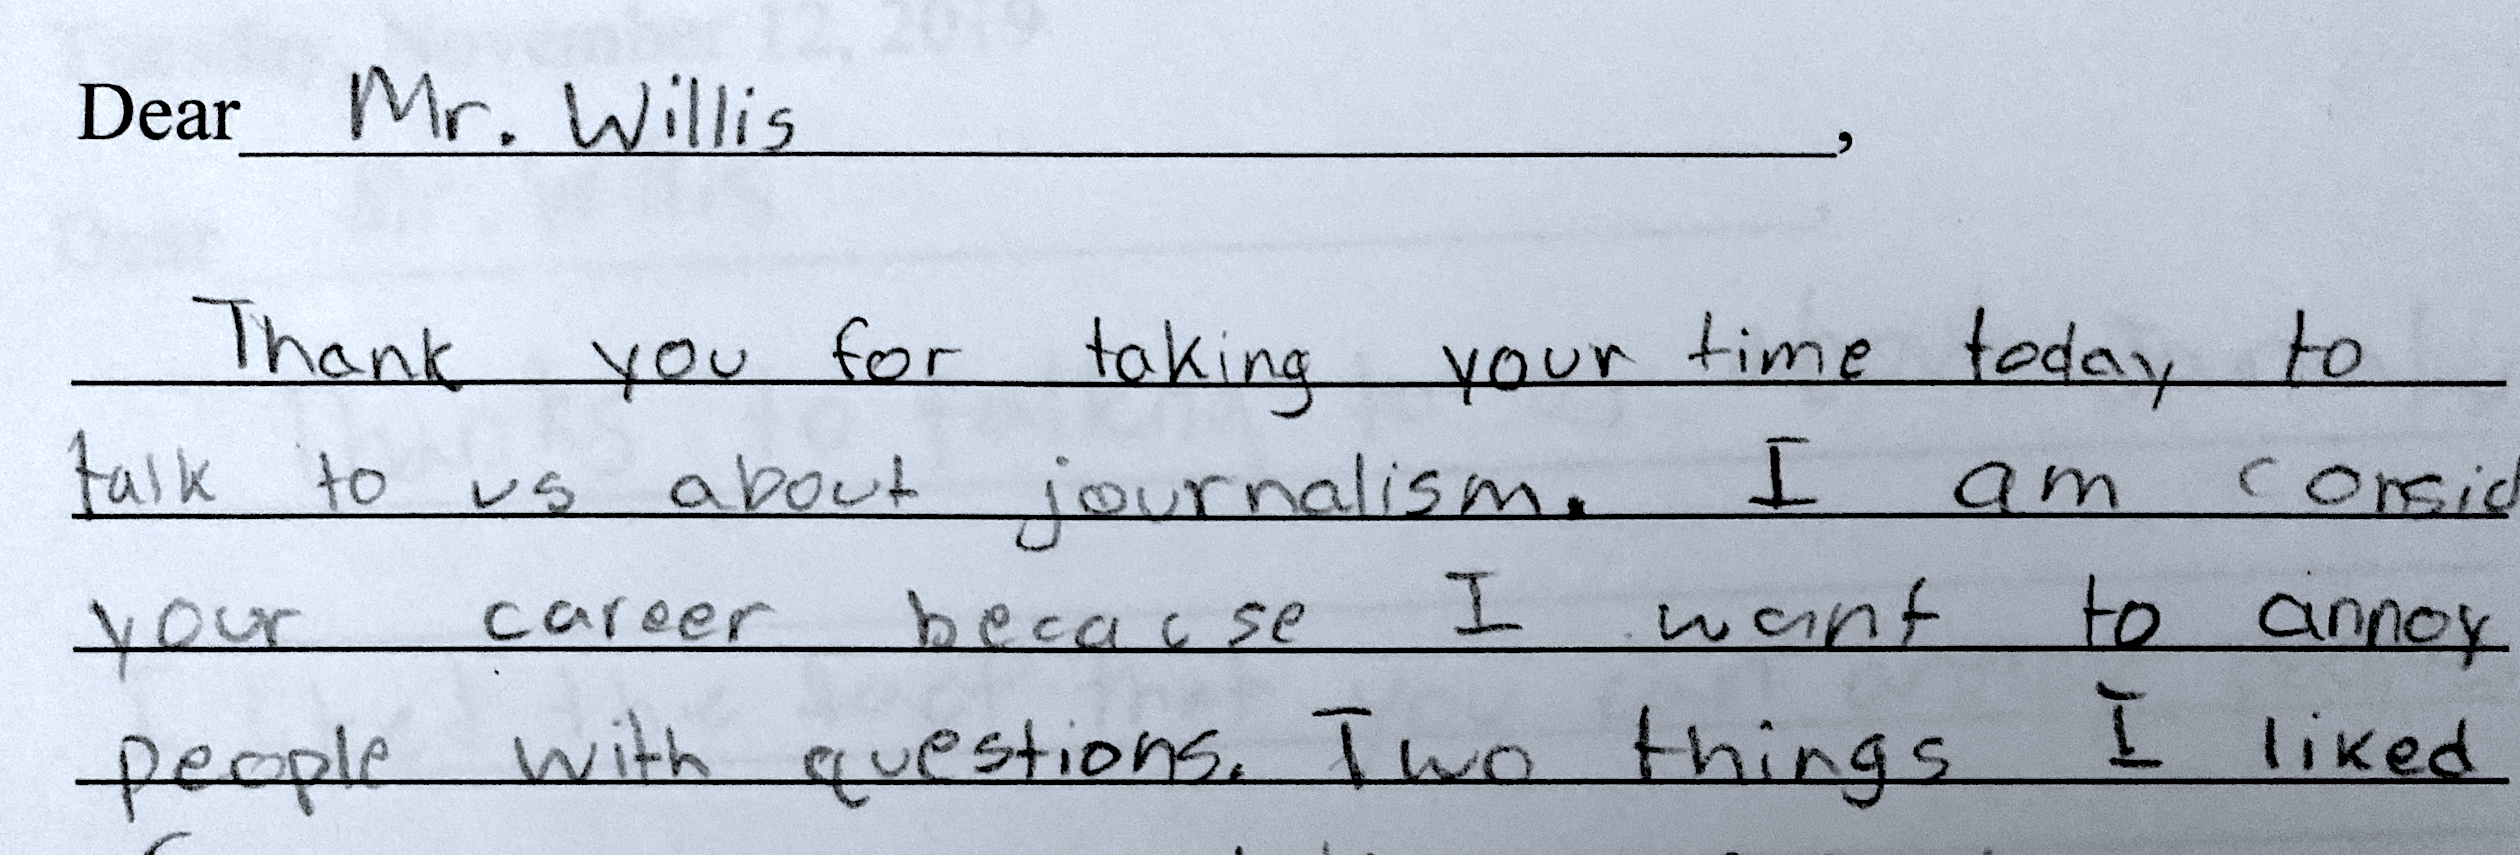 Tuesday, November 12, 2019
Dear Mr. Willis,
Thank you for taking your time today to
talk to us about journalism. I am consid
your career because I want to annoy
people with questions. Two things I liked